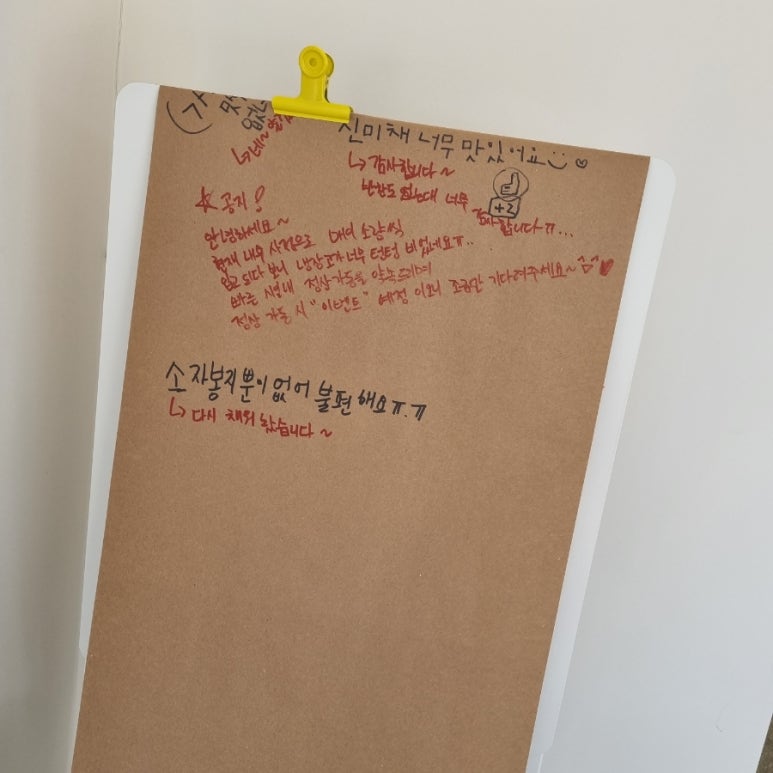 없
↳ 네~
진미채 너무 맛있어요
↳ 감사합니다~
반찬도 있는대 너무
+2
감사합니다ㅠ...
☆ 공지!
안녕하세요~
현재 내부 사정으로 매여 소량씩
입고 되다 보니 냉장고가 너무 텅텅 비었네요ㅠ..
빠른 시일내 정상가동을 약속드리며
정상 가동 시 "이벤트" 예정 이오니 조금만 기다려주세요~ ^^ ♥
소 자봉지 뿐이 없어 불편해요ㅠ.ㅠ
↳ 다시 채워 놨습니다~